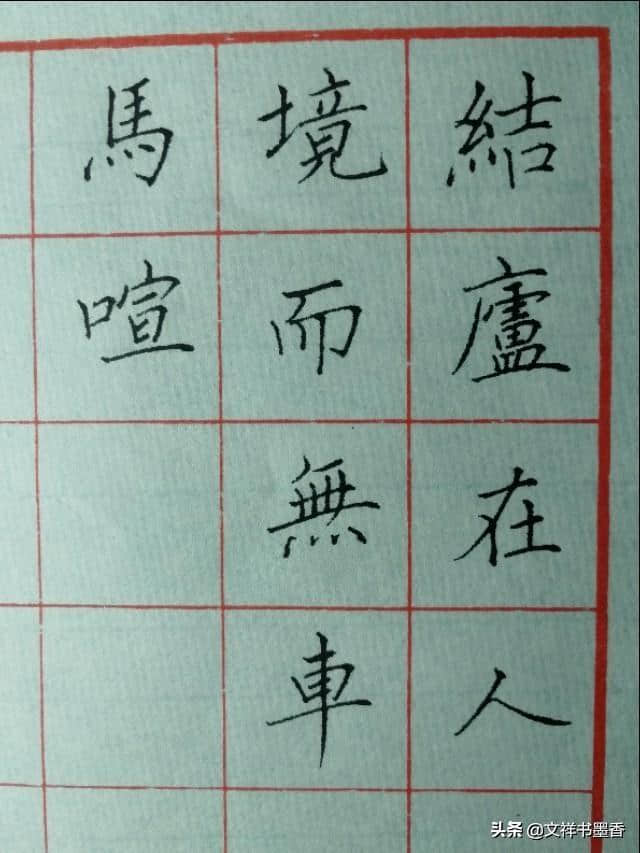 結廬在人
境而無車
馬喧
头条 @文祥书墨香